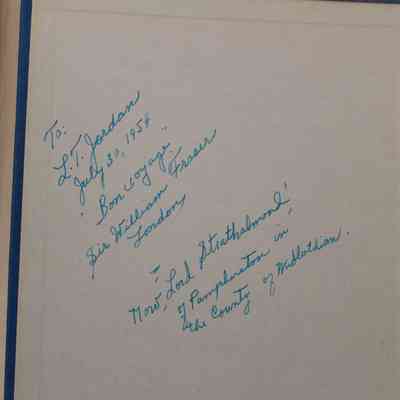 To:
L.T. Jordan
July 30, 1954
"Bon voyage"
Sir William Fraser
London
"Now, Lord Strathalmond"
of Pumpherston in
the County of Midlothian.